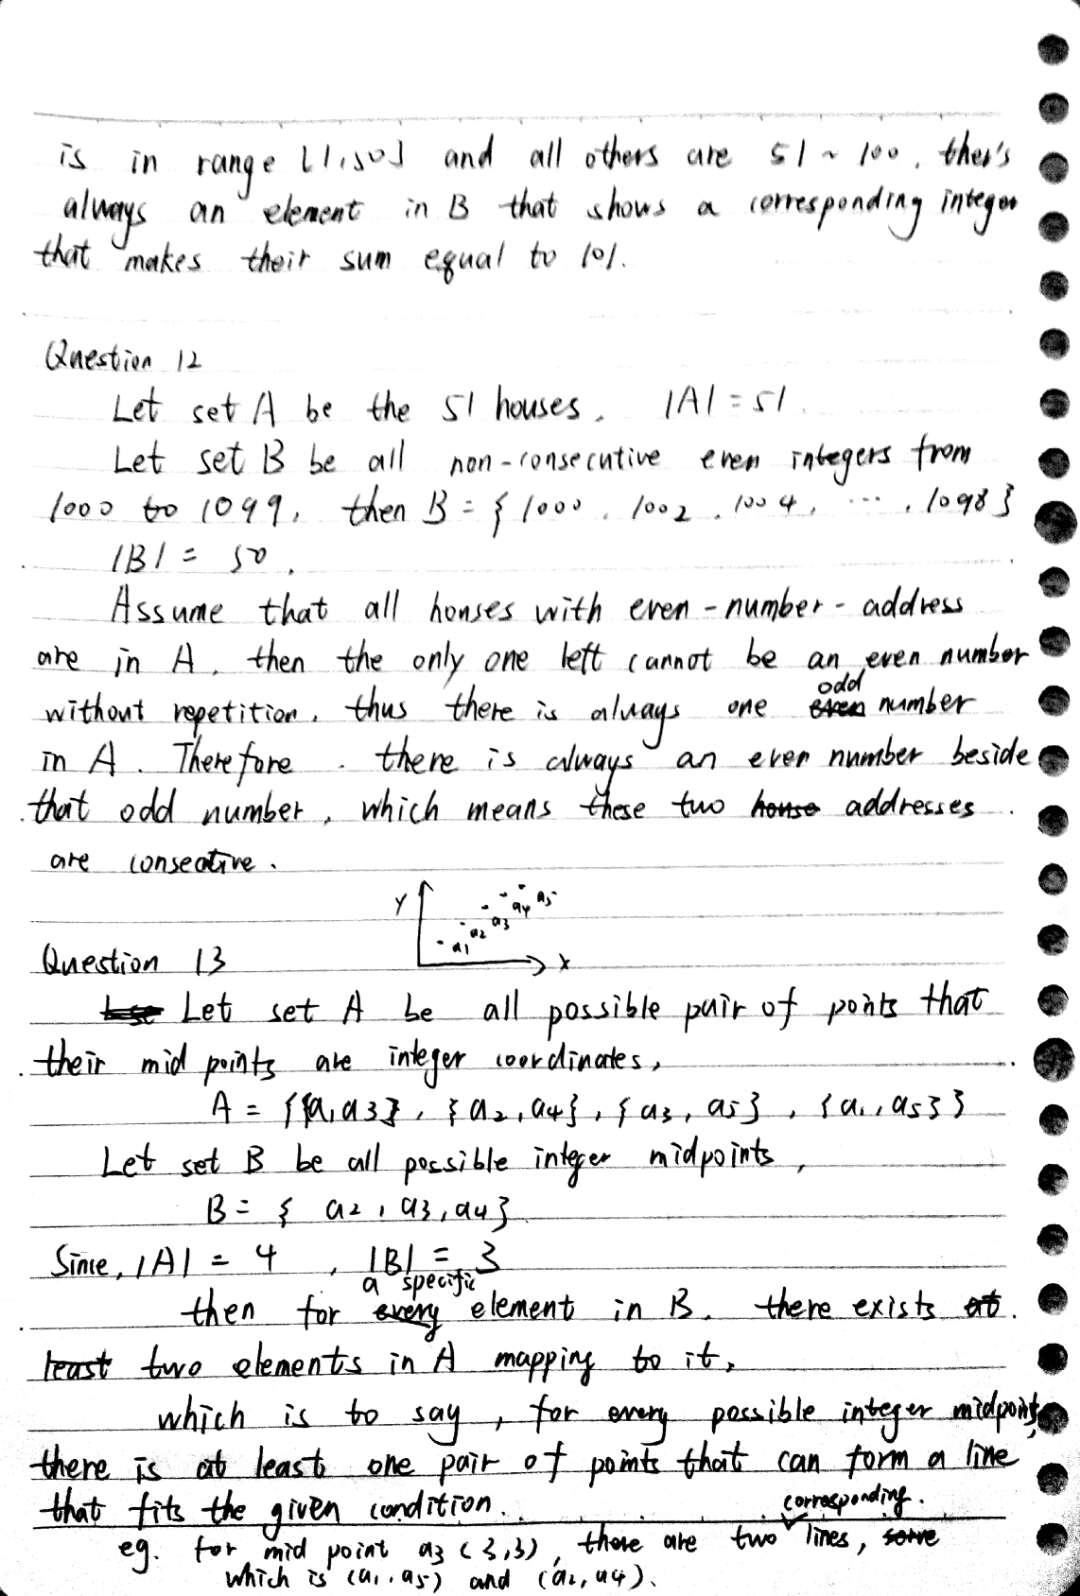 is in range [1,50] and all others are 51 ~ 100, ther's
always an element in B that shows a corresponding integer
that makes their sum equal to 101.
Question 12
Let set A be the 51 houses. |A| = 51.
Let set B be all non-consecutive even integers from
1000 to 1099, then B = { 1000, 1002, 1004, ..., 1098 }
|B| = 50.
Assume that all houses with even-number-address
are in A, then the only one left cannot be an even number
without repetition, thus there is always one odd even number
in A. Therefore, there is always an even number beside
that odd number, which means these two house addresses
are conseative.
Y a1 a2 a3 a4 a5 X
Question 13
Let set A be all possible pair of points that
their mid points are integer coordinates,
A = {{a1,a3}, {a2,a4}, {a3,a5}, {a1,a5}}
Let set B be all possible integer midpoints,
B = { a2, a3, a4}
Since, |A| = 4, |B| = 3
then for every a specific element in B, there exists at
least two elements in A mapping to it,
which is to say, for every possible integer midpoint,
there is at least one pair of points that can form a line
that fits the given condition.
eg. for mid point a3 (3,3), there are two corresponding lines, some
which is (a1,a5) and (a2,a4).